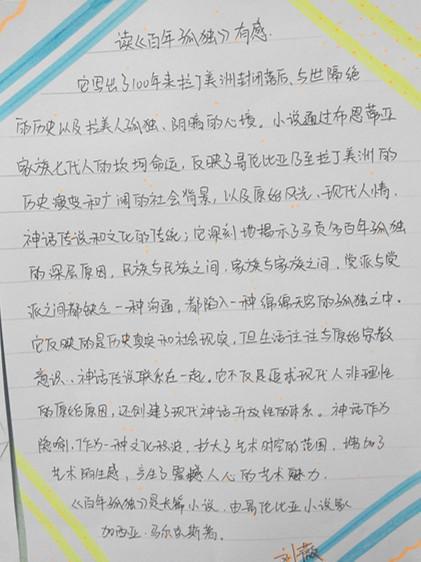 读《百年孤独》有感
它写出了100年来拉丁美洲封闭落后、与世隔绝
的历史以及拉美人孤独、阴暗的心境。小说通过布恩蒂亚
家族七代人的坎坷命运，反映了哥伦比亚乃至拉丁美洲的
历史演变和广阔的社会背景，以及原始风光、现代人情、
神话传说和文化的传统；它深刻地揭示了马贡多百年孤独
的深层原因，民族与民族之间，家族与家族之间，党派与党
派之间都缺乏一种沟通，都陷入一种绵绵无穷的孤独之中。
它反映的是历史真实和社会现实，但生活往往与原始宗教
意识、神话传说联系在一起。它不仅是追求现代人非理性
的原始原因，还创建了现代神话开放性的体系。神话作为
隐喻，作为一种文化，扩大了艺术时空的范围，增加了
艺术的性感，产生了震撼人心的艺术魅力。
《百年孤独》是长篇小说，由哥伦比亚小说家
加西亚·马尔克斯著。
刘薇